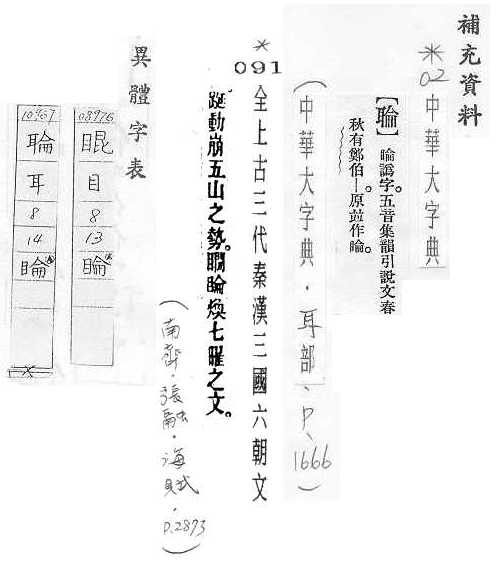 補充資料
*02 中華大字典
睔譌字。五音集韻引說文春
秋有鄭伯—原竝作睔。
(中華大字典．耳部、P、1666)
*
091
全上古三代秦漢三國六朝文
動崩五山之勢。睔煥七曜之文。
(南齊．張融．海賦．P.2873)
異體字表
08976
目
8
13
睔
10467
耳
8
14
睔